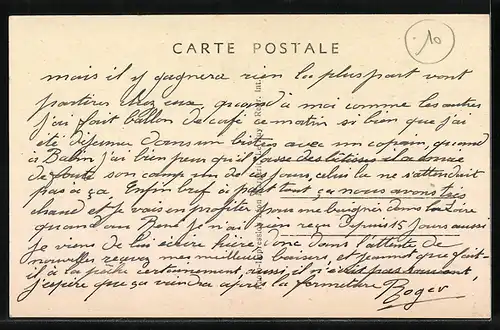 10
CARTE POSTALE
mais il y gagnera rien la pluspart vont
partires chez eux, quand à moi comme les autres
j'ai fait ballon de café ce matin si bien que j'ai
été déjeuner dans un bistro avec un copain, quand
à j'ai bien peur qu'il fasse des bêtises il a
de son camp un de ces jours, celui la ne s'attendait
pas à ça. Enfin bref à part tout ça nous avons très
chaud et je vais en profiter pour me baigner dans la Loire
quand aux René je n'ai rien reçu depuis 15 jours aussi
je viens de lui écrire hière, donc dans l'attente de
nouvelles reçois mes meilleurs baisers et que fait-
il à la pêche certainement, aussi il n'écrit pas souvent,
j'espère que ça viendra après la fermeture Roger